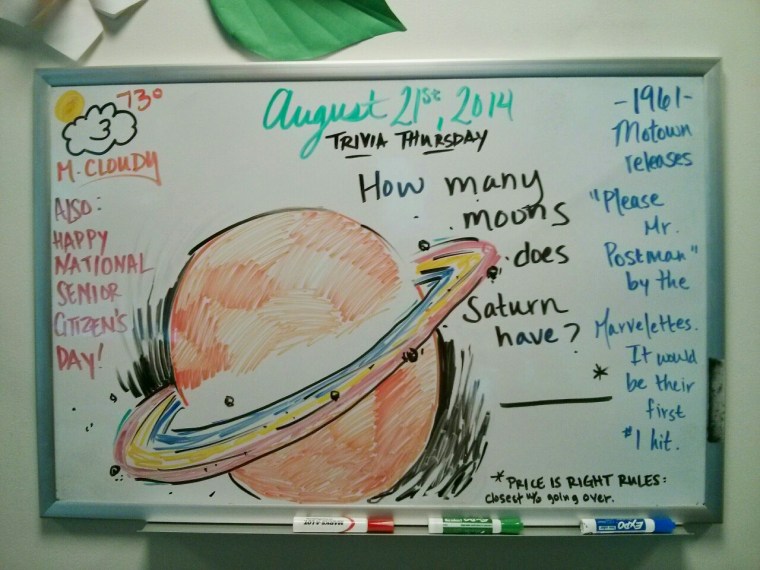 August 21st, 2014
TRIVIA THURSDAY
73°
M. CLOUDY
ALSO:
HAPPY
NATIONAL
SENIOR
CITIZEN'S
DAY!
How many
moons
does
Saturn
have?
*
*PRICE IS RIGHT RULES:
closest w/o going over.
-1961-
Motown
releases
"Please
Mr.
Postman"
by the
Marvelettes.
It would
be their
first
#1 hit.
MARKS-A-LOT
EXPO
EXPO